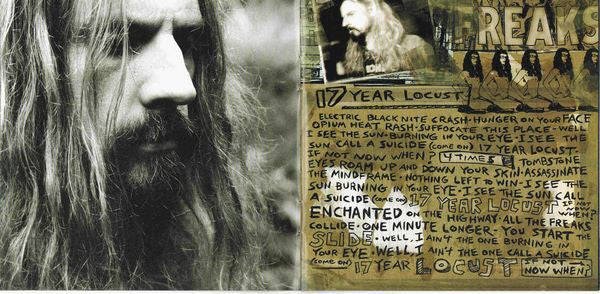 FREAKS
17 YEAR LOCUST
ELECTRIC BLACK NITE CRASH • HUNGER ON YOUR FACE
OPIUM HEAT RASH • SUFFOCATE THIS PLACE • WELL
I SEE THE SUN • BURNING IN YOUR EYE • I SEE THE
SUN CALL A SUICIDE (COME ON) 17 YEAR LOCUST •
IF NOT NOW WHEN? 4 TIMES TOMBSTONE
EYES ROAM UP AND DOWN YOUR SKIN • ASSASSINATE
THE MINDFRAME • NOTHING LEFT TO WIN • I SEE THE
SUN BURNING IN YOUR EYE • I SEE THE SUN CALL
A SUICIDE (COME ON) 17 YEAR LOCUST IF NOT NOW WHEN?
ENCHANTED ON THE HIGHWAY • ALL THE FREAKS
COLLIDE • ONE MINUTE LONGER • YOU START THE
SLIDE • WELL, I AIN'T THE ONE BURNING IN
YOUR EYE • WELL, I AIN'T THE ONE CALL A SUICIDE
(COME ON) 17 YEAR LOCUST IF NOT NOW WHEN?